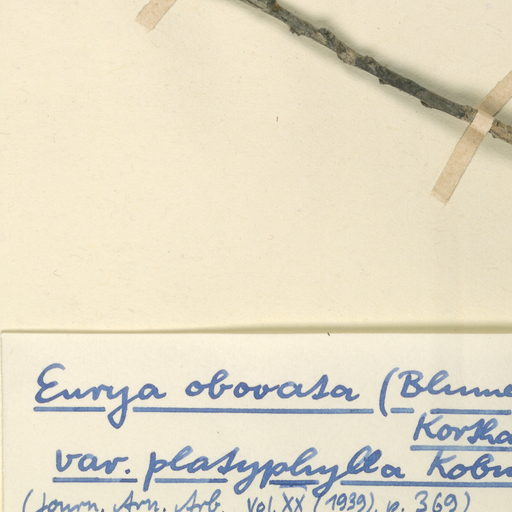 Eurya obovata (Blume
Kortha
var. platyphylla Kobu
(Journ. Arn. Arb. Vol. XX (1939). p. 369)